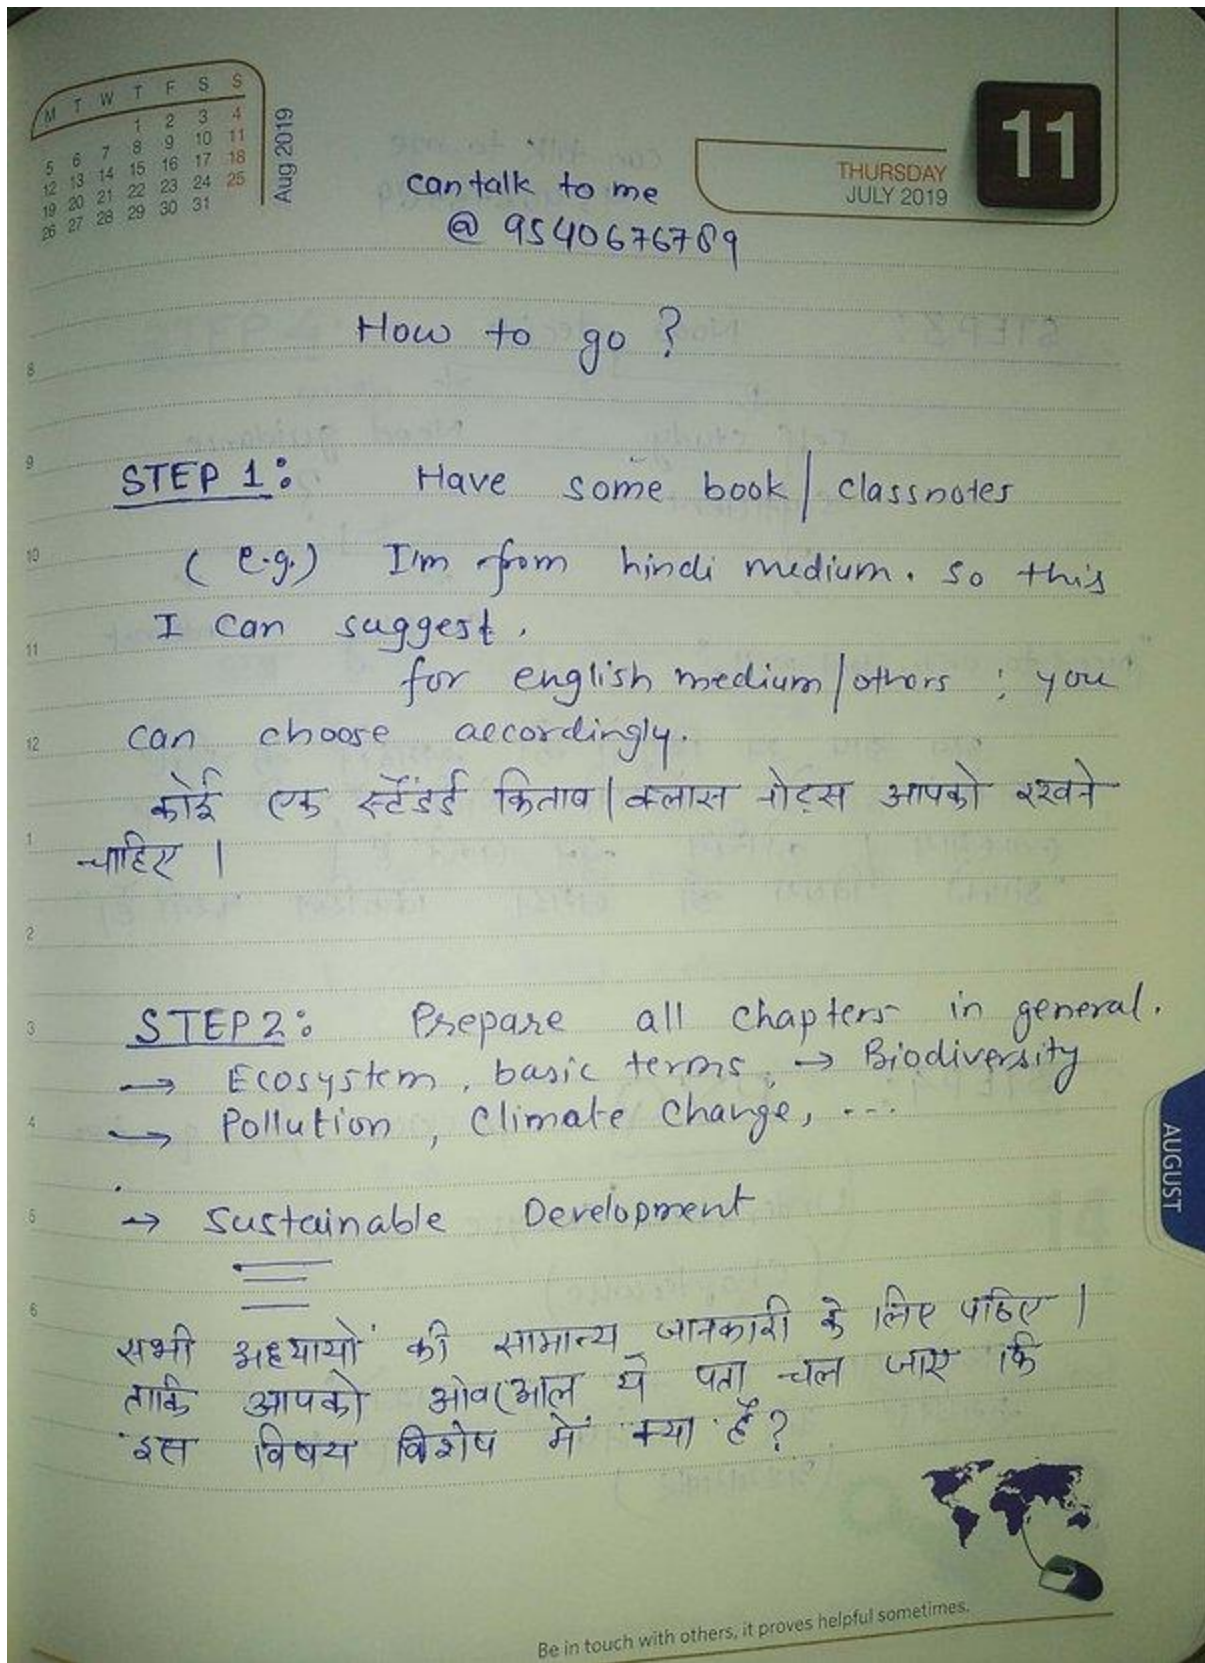 M T W T F S S
1 2 3 4
5 6 7 8 9 10 11
12 13 14 15 16 17 18
19 20 21 22 23 24 25
26 27 28 29 30 31
Aug 2019
THURSDAY
JULY 2019
11
can talk to me
@ 9540676789
How to go ?
8
9
STEP 1: Have some book / classnotes
10
(e.g.) I'm from hindi medium. so this
I can suggest.
11
for english medium / others ; you
12
can choose accordingly.
कोई एक स्टैंडर्ड किताब / क्लास नोट्स आपको रखने
1
चाहिए |
2
3
STEP 2: Prepare all chapters in general.
→ Ecosystem, basic terms, → Biodiversity
4
→ Pollution, Climate Change, ...
5
→ Sustainable Development
6
सभी अध्यायों की सामान्य जानकारी के लिए पढिए |
ताकि आपको ओवरआल ये पता चल जाए कि
इस विषय विशेष में क्या है?
AUGUST
Be in touch with others, it proves helpful sometimes.